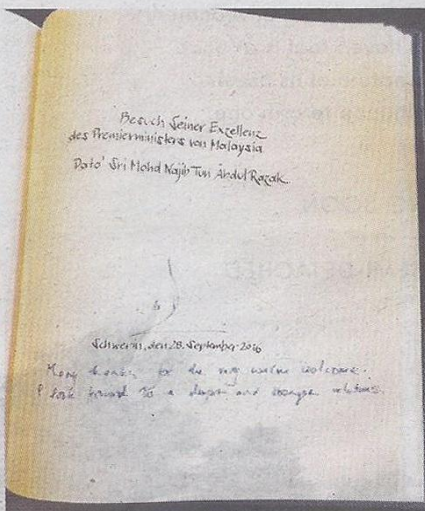 Besuch Seiner Exzellenz
des Premierministers von Malaysia
Dato' Sri Mohd Najib Tun Abdul Razak
Schwerin, den 28. September 2016
Many thanks for the very warm welcome.
I look forward to a deeper and stronger relations.